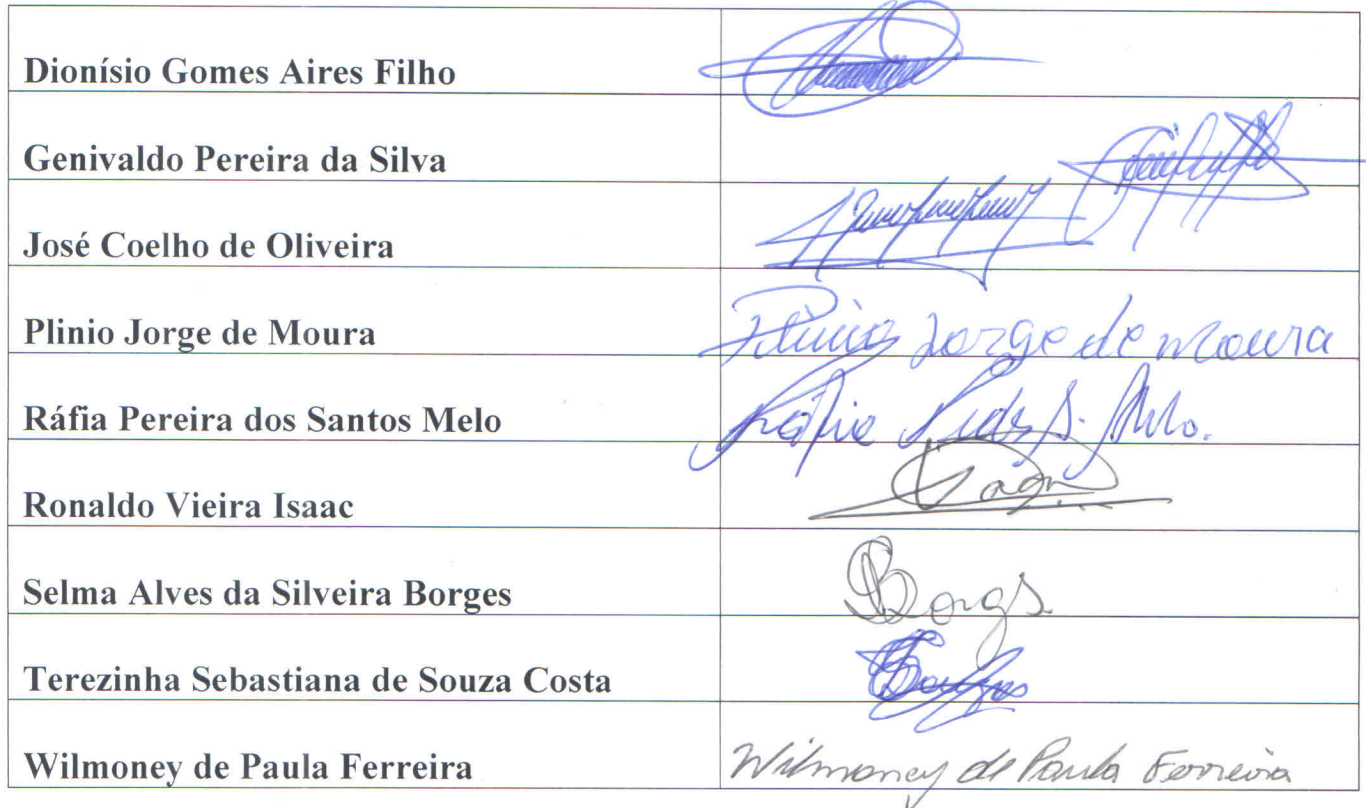 Dionísio Gomes Aires Filho
Genivaldo Pereira da Silva
José Coelho de Oliveira
Plinio Jorge de Moura Plinio Jorge de Moura
Ráfia Pereira dos Santos Melo Ráfia
Ronaldo Vieira Isaac
Selma Alves da Silveira Borges
Terezinha Sebastiana de Souza Costa
Wilmoney de Paula Ferreira Wilmoney de Paula Ferreira